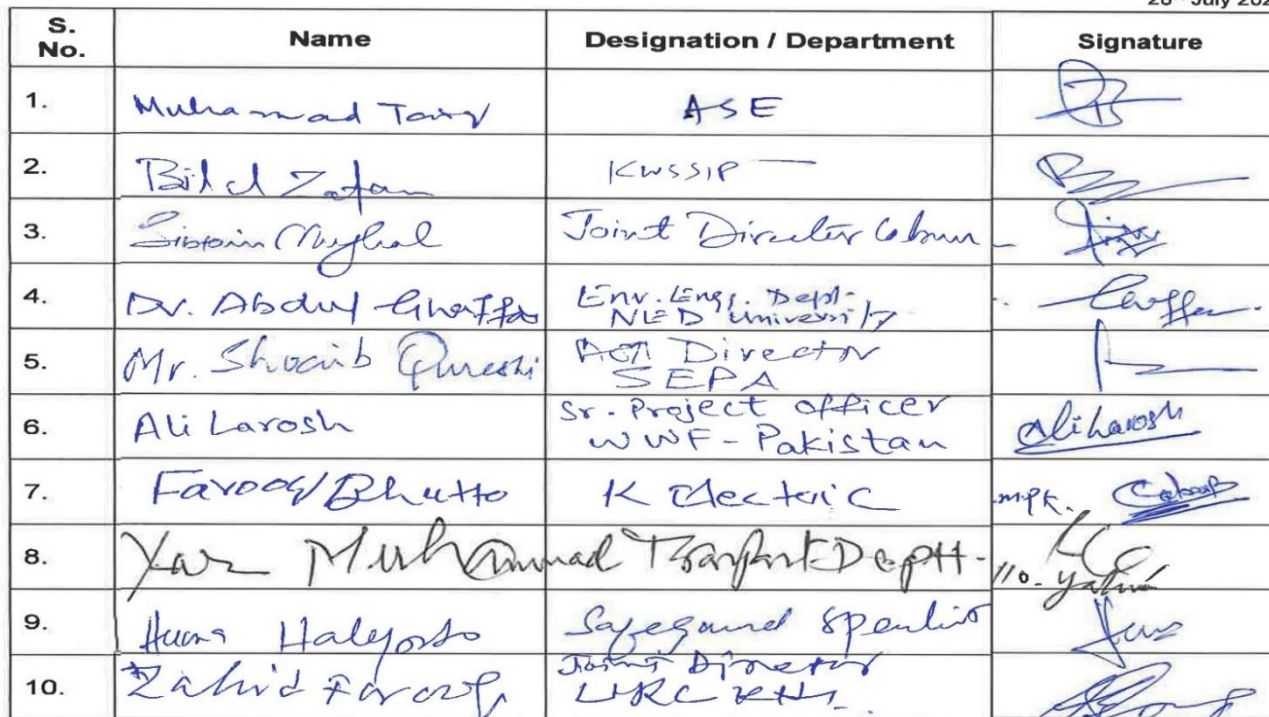 July 202
S. No. Name Designation / Department Signature
1. Muhammad Tariq ASE
2. Bilal Zafar KWSSIP
3. Sibtain Mughal Joint Director Labour
4. Dr. Abdul Ghaffar Env. Eng. Dept.
NED University
5. Mr. Shoaib Qureshi Director
SEPA
6. Ali Larosh Sr. Project officer
WWF - Pakistan Ali Larosh
7. Farooq Bhutto K Electric
8. Yar Muhammad Deptt.
9. Huma Safeguard
10. Zahid Farooq Joint Director
URC KHI.